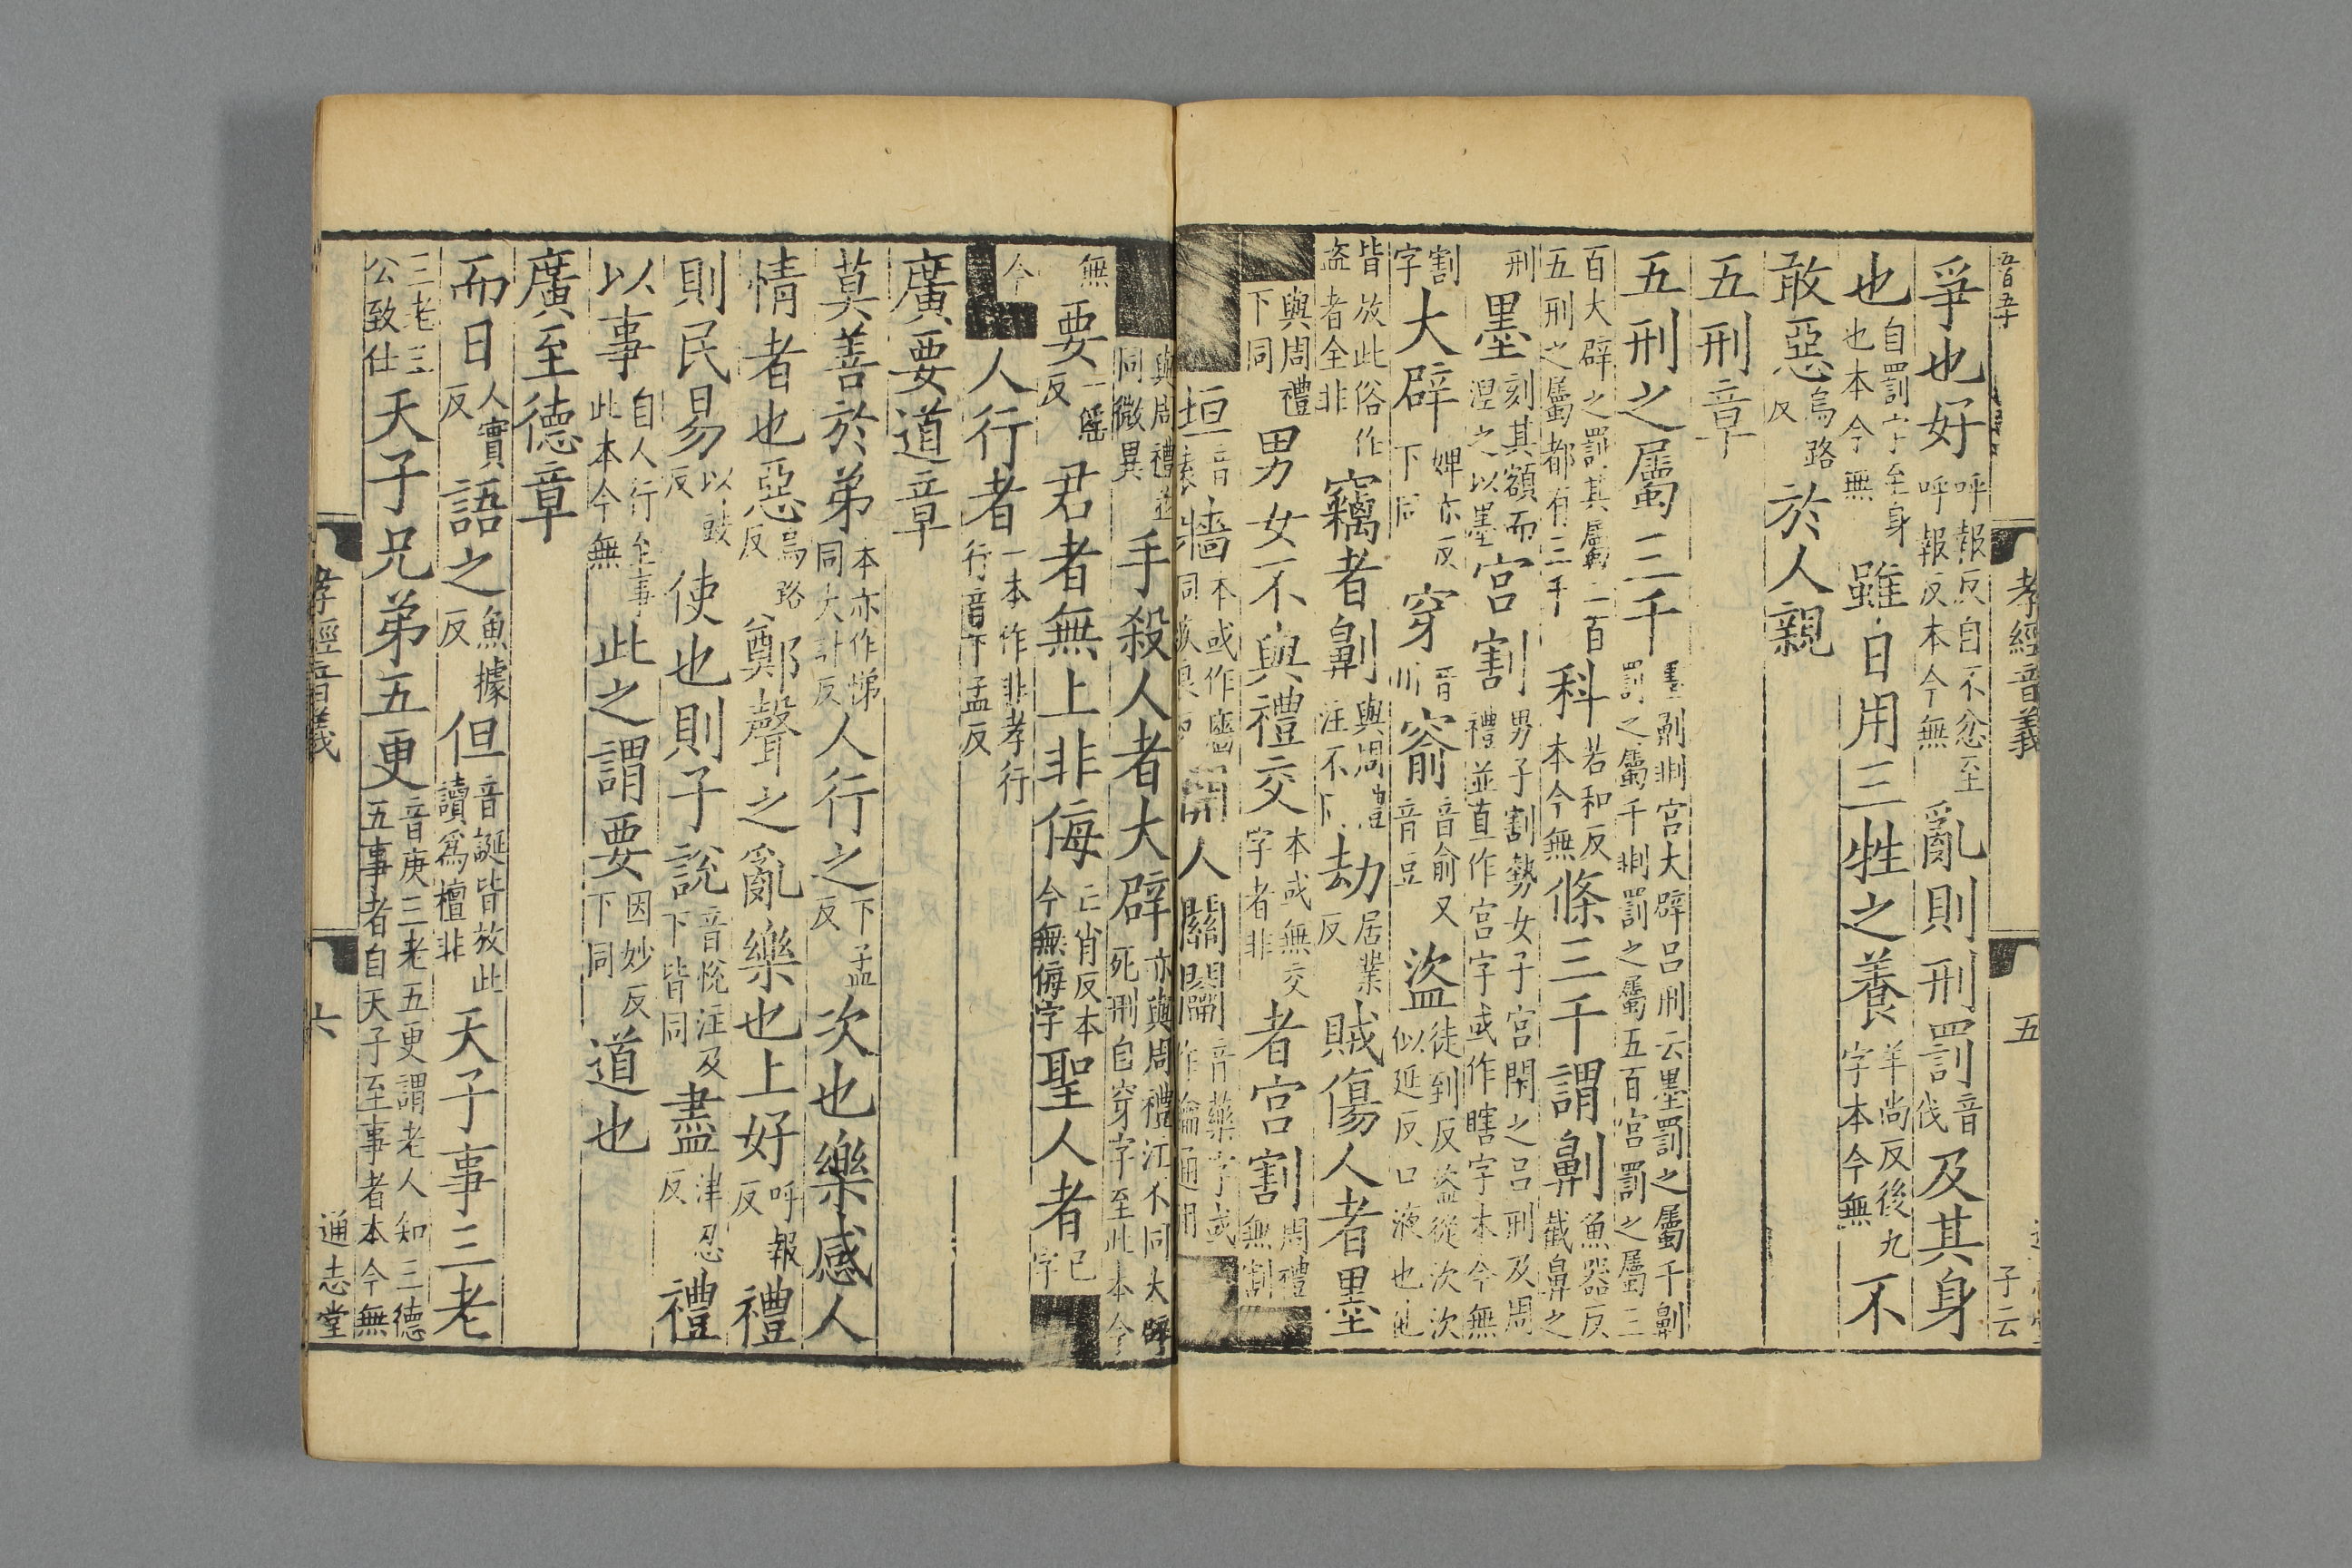 孝經音義
五
子云
爭也好呼報反自不忿至呼報反本今無亂則刑罰音伐及其身
也自罰字至身也本今無雖日用三牲之養羊尚反後九字本今無不
敢惡烏路反於人親
五刑章
五刑之屬三千墨劓剕宮大辟呂刑云墨罰之屬千劓罰之屬千剕罰之屬五百宮罰之屬三
百大辟之罰其屬二百五刑之屬都有三千科若和反本今無條三千謂劓魚器反截鼻之
刑墨刻其額而涅之以墨宮割男子割勢女子宮閉之呂刑及周禮並直作宮字或作瞎字本今無
割字大辟婢亦反下同穿音川窬音俞又音豆盜徒到反盜從次次似延反口液也
皆放此俗作盜者全非竊者劓與周禮注不下劫居業反賊傷人者墨
與周禮下同男女不與禮交本或無交字者非者宮割周禮無割
垣音袁牆本或作廧同開人關闟音藥字或作鑰通用
與周禮並同微異手殺人者大辟亦與周禮江不同大辟死刑自穿字至此本今
無要一遙反君者無上非侮亡甫反本今無侮字聖人者已字
今人行者一本作非孝行行音下孟反
廣要道章
莫善於弟本亦作悌同大計反人行之下孟反次也樂感人
情者也惡烏路反鄭聲之亂樂也上好呼報反禮
則民易以豉反使也則子說音悅注及下皆同盡津忍反禮
以事自人行至事此本今無此之謂要因妙反下同道也
廣至德章
而日人實反語之魚據反但音誕皆放此讀爲檀非天子事三老
三老三公致仕天子兄弟五更音庚三老五更謂老人知三德五事者自天子至事者本今無
孝經音義
六
通志堂